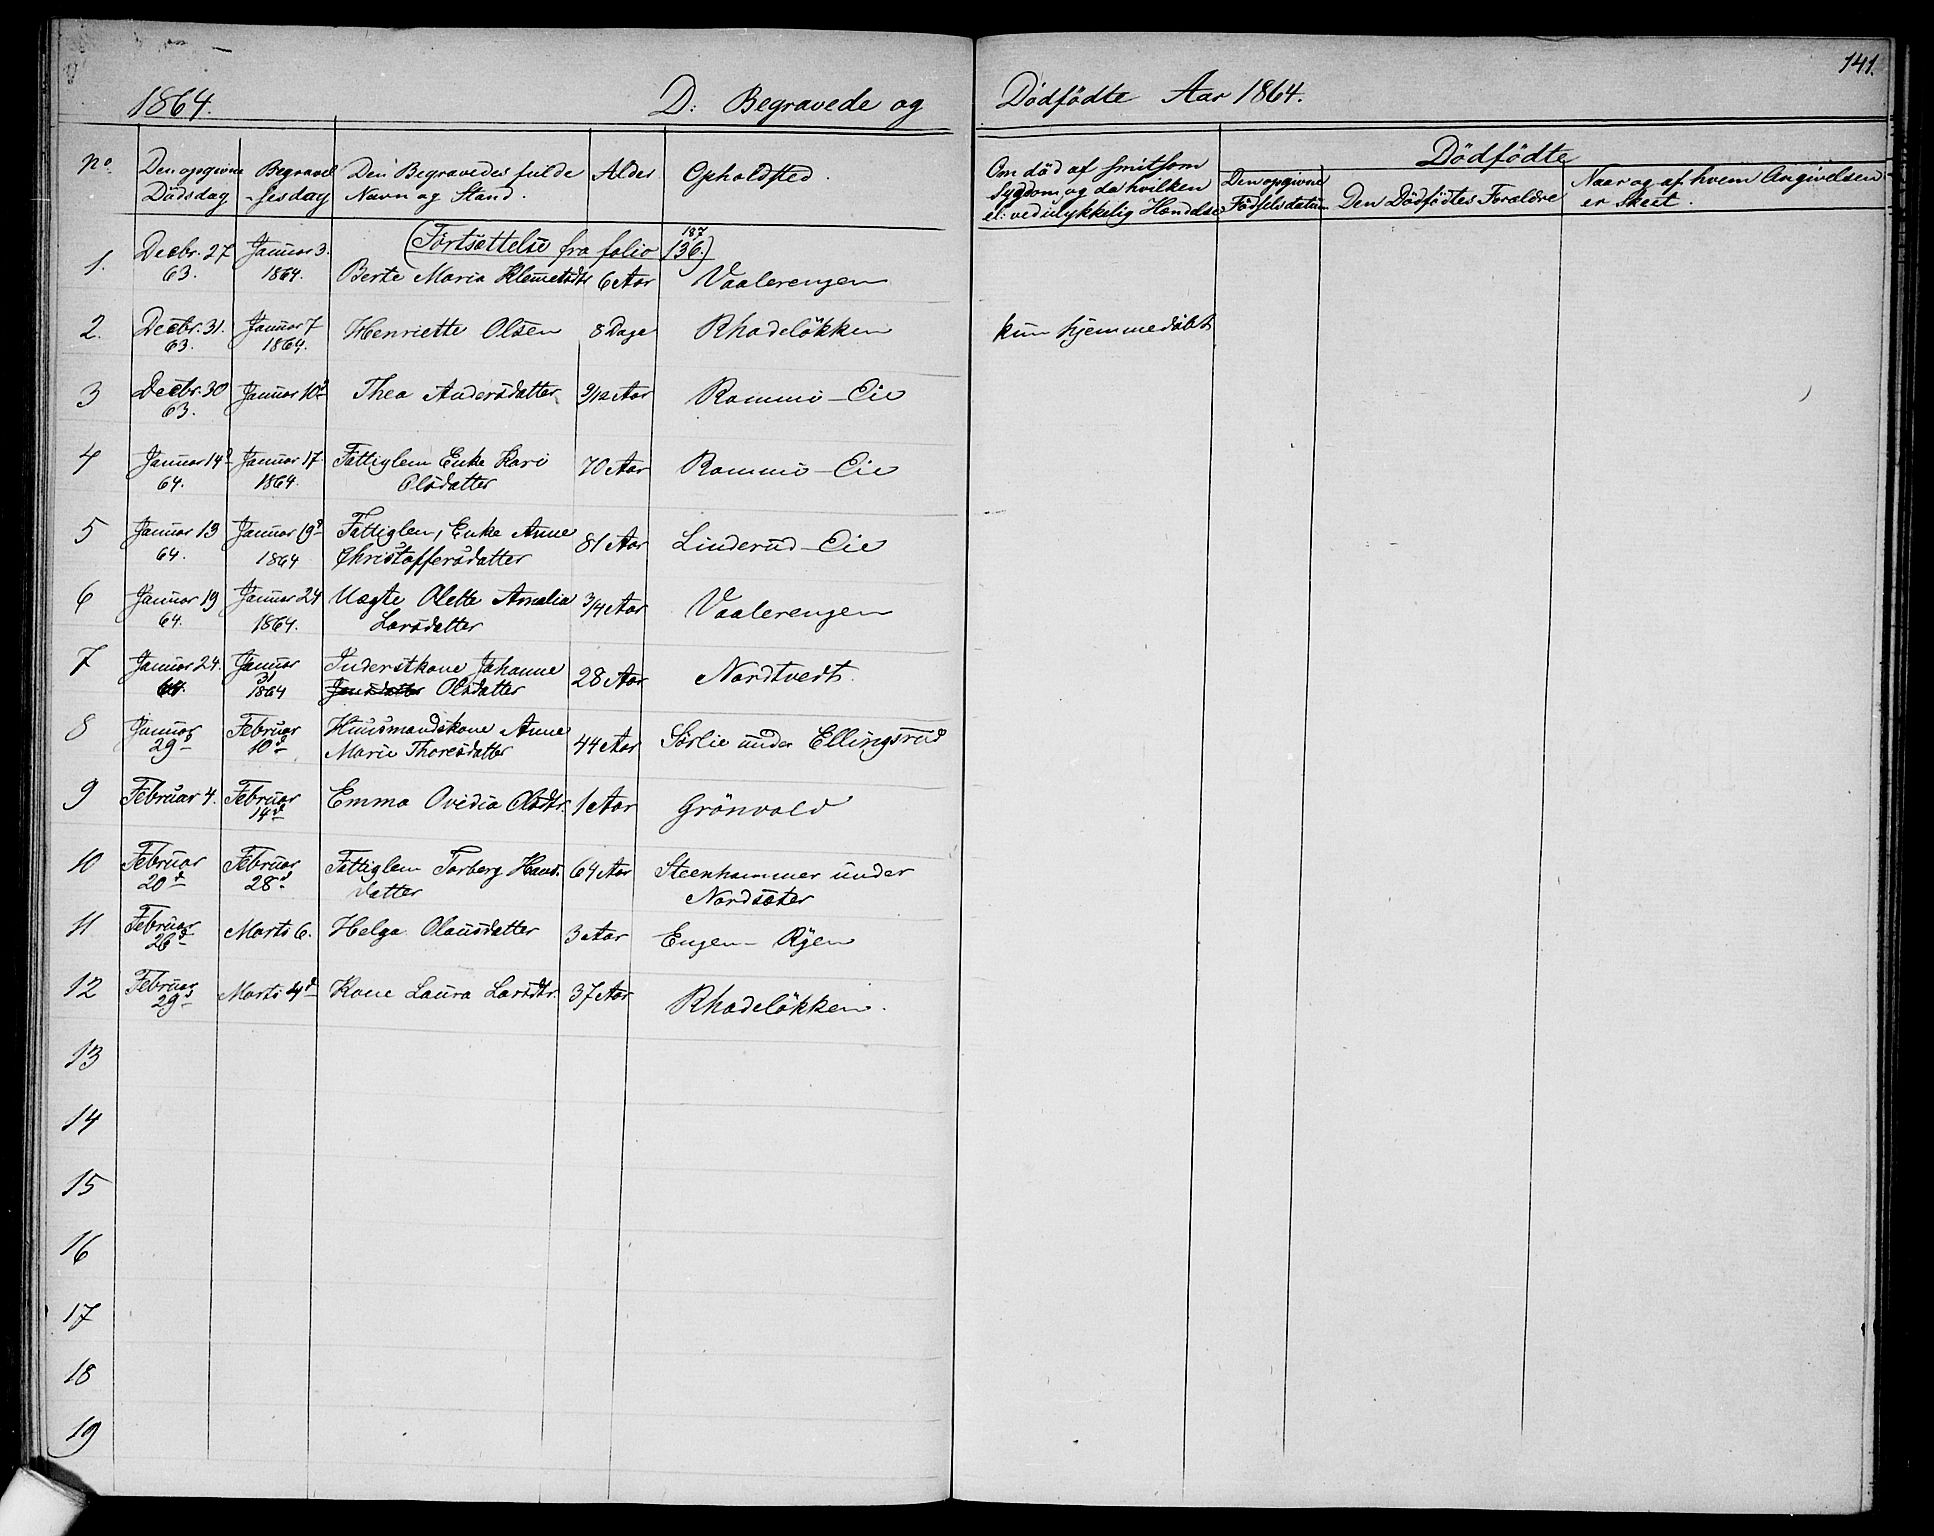 141.
1864. D: Begravede og Dödfödte Aar 1864.
No. Den opgivne Dödsdag Begravel-sesdag Den Begravedes fulde Navn og Stand. Alder Opholdsted.
Om död af smitsom Sygdom, og da hvilken el: ved ulykkelig Hændelse
Dödfödte
Den opgivne Födselsdatum Den Dödfödtes Forældre Naar og af hvem Angivelsen er skeet.
(Fortsættelse fra folio 136.) 187
1. Decbr. 27 63. Januar 3. 1864. Berte Maria Klemetsdtr 6 Aar Vaalerengen
2. Decbr. 31. 63. Januar 7 1864. Henriette Olsen 8 Dage Rhodelökken kun hjemmedöbt
3 Decbr. 30 63. Januar 10d Thea Andersdatter 9/12 Aar Rommo-Eie
4 Januar 14d 64. Januar 17 1864. Fattiglem Enke Kari Olsdatter 70 Aar Rommo-Eie
5 Januar 13 64. Januar 19d 1864 Fattiglem, Enke Anne Christoffersdatter 81 Aar Linderud-Eie
6 Januar 19 64. Januar 24 1864. Uægte Olette Amalia Larsdatter 3/4 Aar Vaalerengen
7 Januar 24. 64. Januar 31 1864 Inderstkone Johanne Jensdatter Olsdatter 28 Aar Nordtvedt.
8 Januar 29d Februar 10d Huusmandskone Anne Marie Thoresdatter 44 Aar Sörlie under Ellingsrud
9 Februar 4. Februar 14d Emma Ovidia Olsdtr. 1 Aar Grönvold
10 Februar 20d Februar 28d Fattiglem Torberg Hans-datter 64 Aar Steenhammer under Nordsæter
11 Februar 26d Marts 6. Helga Olausdatter 3 Aar Engen- Ryen
12 Februar 29d Marts 4d Kone Laura Larsdtr. 37 Aar Rhodelökken.
13
14
15
16
17
18
19